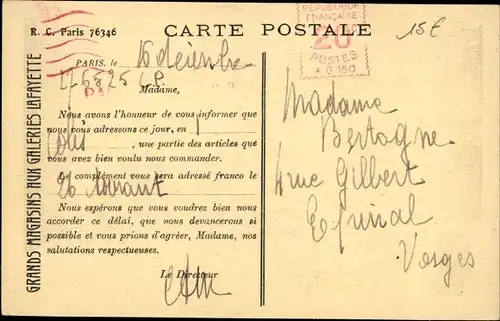 R. C. Paris 76346
CARTE POSTALE
RÉPUBLIQUE
FRANÇAISE
20
POSTES
15€
GRANDS MAGASINS AUX GALERIES LAFAYETTE
PARIS, le 16 Décembre
Madame,
Nous avons l'honneur de vous informer que
nous vous adressons ce jour, en 1
Colis, une partie des articles que
vous avez bien voulu nous commander.
Le complément vous sera adressé franco le
26 courant
Nous espérons que vous voudrez bien nous
accorder ce délai, que nous devancerons si
possible et vous prions d'agréer, Madame, nos
salutations respectueuses.
Le Directeur
Madame
Bertogne
4 rue Gilbert
Epinal
Vosges